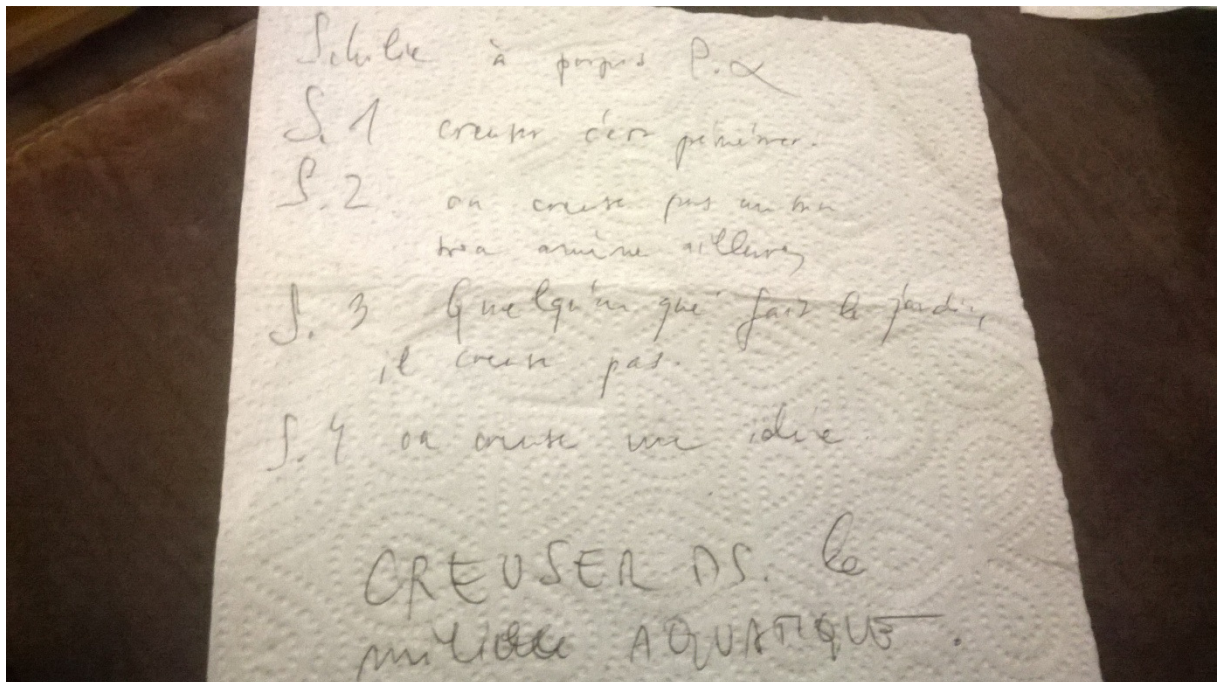 Scholie à propos P.α
S.1 creuser c'est pénétrer.
S.2 on creuse pas un trou
trou amène ailleurs
S.3 Quelqu'un qui fait le jardin,
il creuse pas.
S.4 on creuse une idée
CREUSER DS. le
milieu AQUATIQUE.